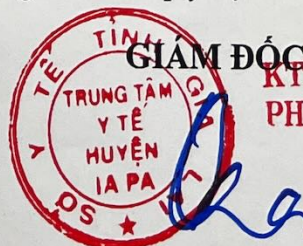 GIÁM ĐỐC
KT
PH
SỞ Y TẾ TỈNH GIA LAI
TRUNG TÂM
Y TẾ
HUYỆN
IA PA